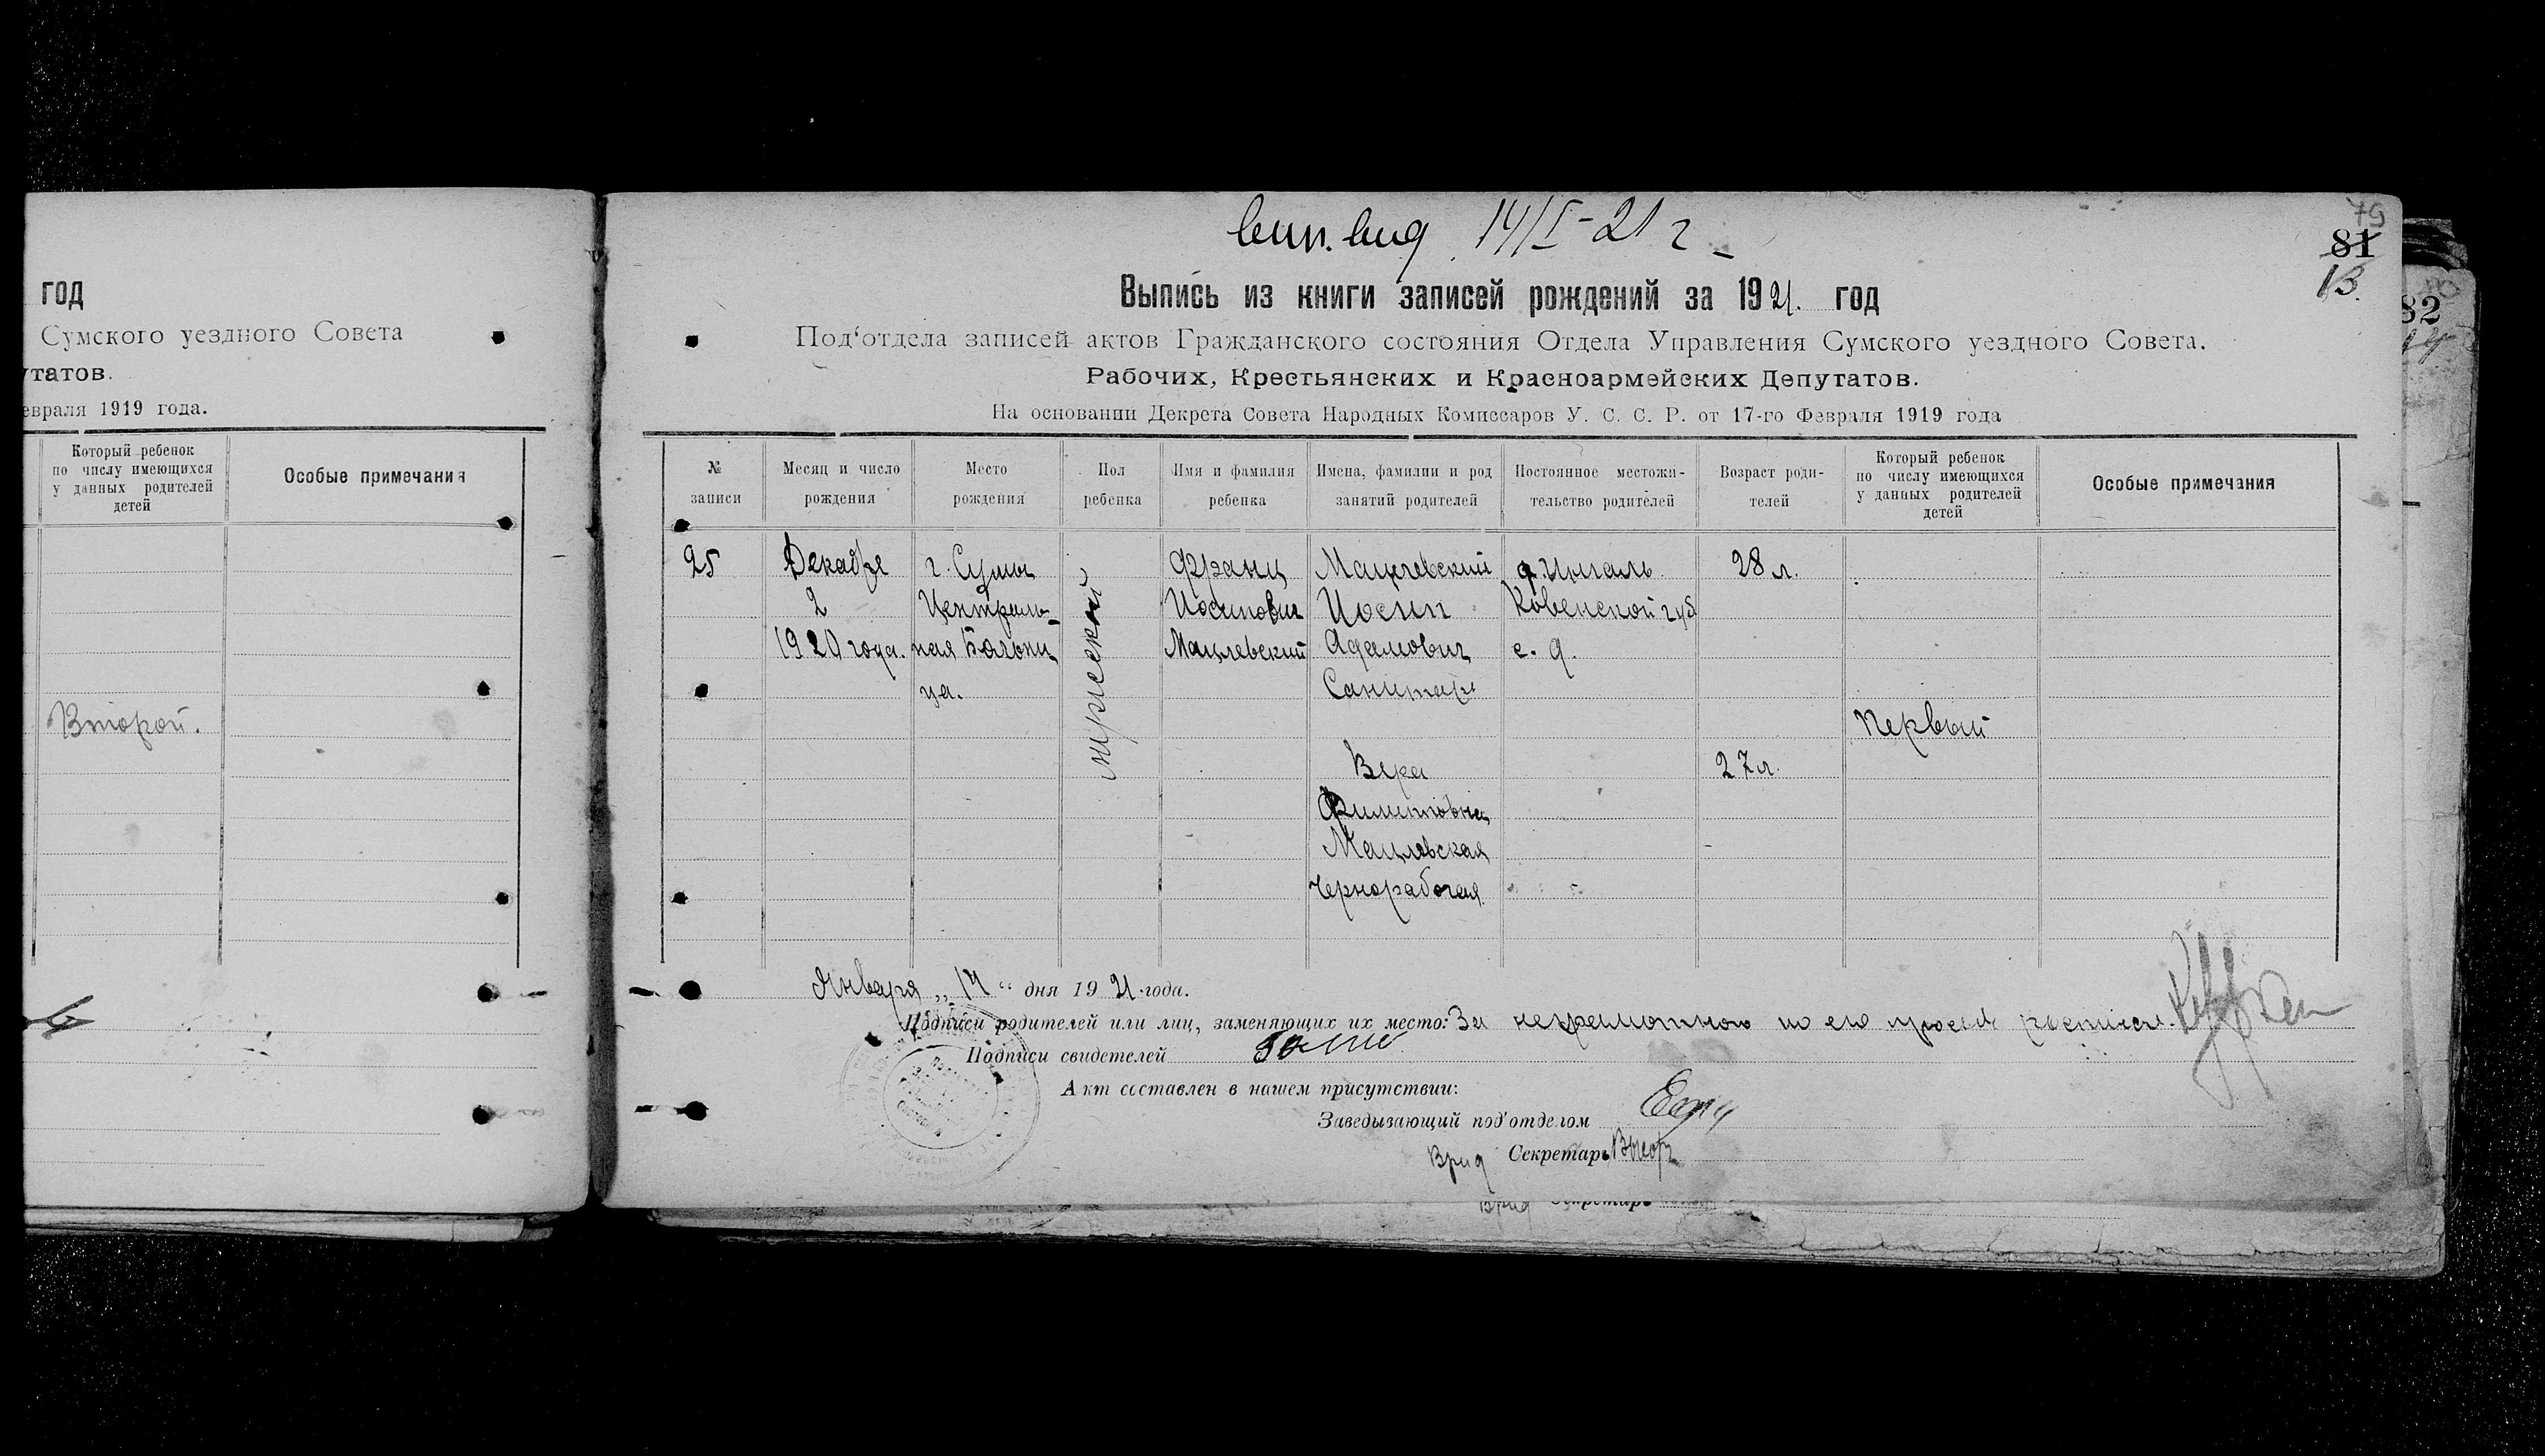 год
Сумского уездного Совета
утатов.
евраля 1919 года.
Который ребенок
по числу имеющихся
у данных родителей
детей
Особые примечания
Второй.
14/I-21 г
79
81
13.
82
Выпись из книги записей рождений за 1921. год
Под‘отдела записей актов Гражданского состояния Отдела Управления Сумского уездного Совета.
Рабочих, Крестьянских и Красноармейских Депутатов.
На основании Декрета Совета Народных Комиссаров У. С. С. Р. от 17-го Февраля 1919 года
№ записи
Месяц и число рождения
Место рождения
Пол ребенка
Имя и фамилия ребенка
Имена, фамилии и род занятий родителей
Постоянное местожительство родителей
Возраст родителей
Который ребенок по числу имеющихся у данных родителей детей
Особые примечания
25
Декабре
2
1920 года.
г. Сумы
Централь-
ная Больни
ца.
мужеский
Франц
Иосипович
Мацлевский
Мацлевский
Иосип
Адамович
Санитар
Вера
Филиповна
Мацлевская
Чернорабочая.
Ковенской губ
с. д.
28 л.
27 л.
Первый
Января „ 14 “ дня 1921 года.
Подписи родителей или лиц, заменяющих их место: За неграмотного по его просьбе
Подписи свидетелей
Акт составлен в нашем присутствии:
Заведывающий под'отделом
Врид Секретарь
Врид Секретарь